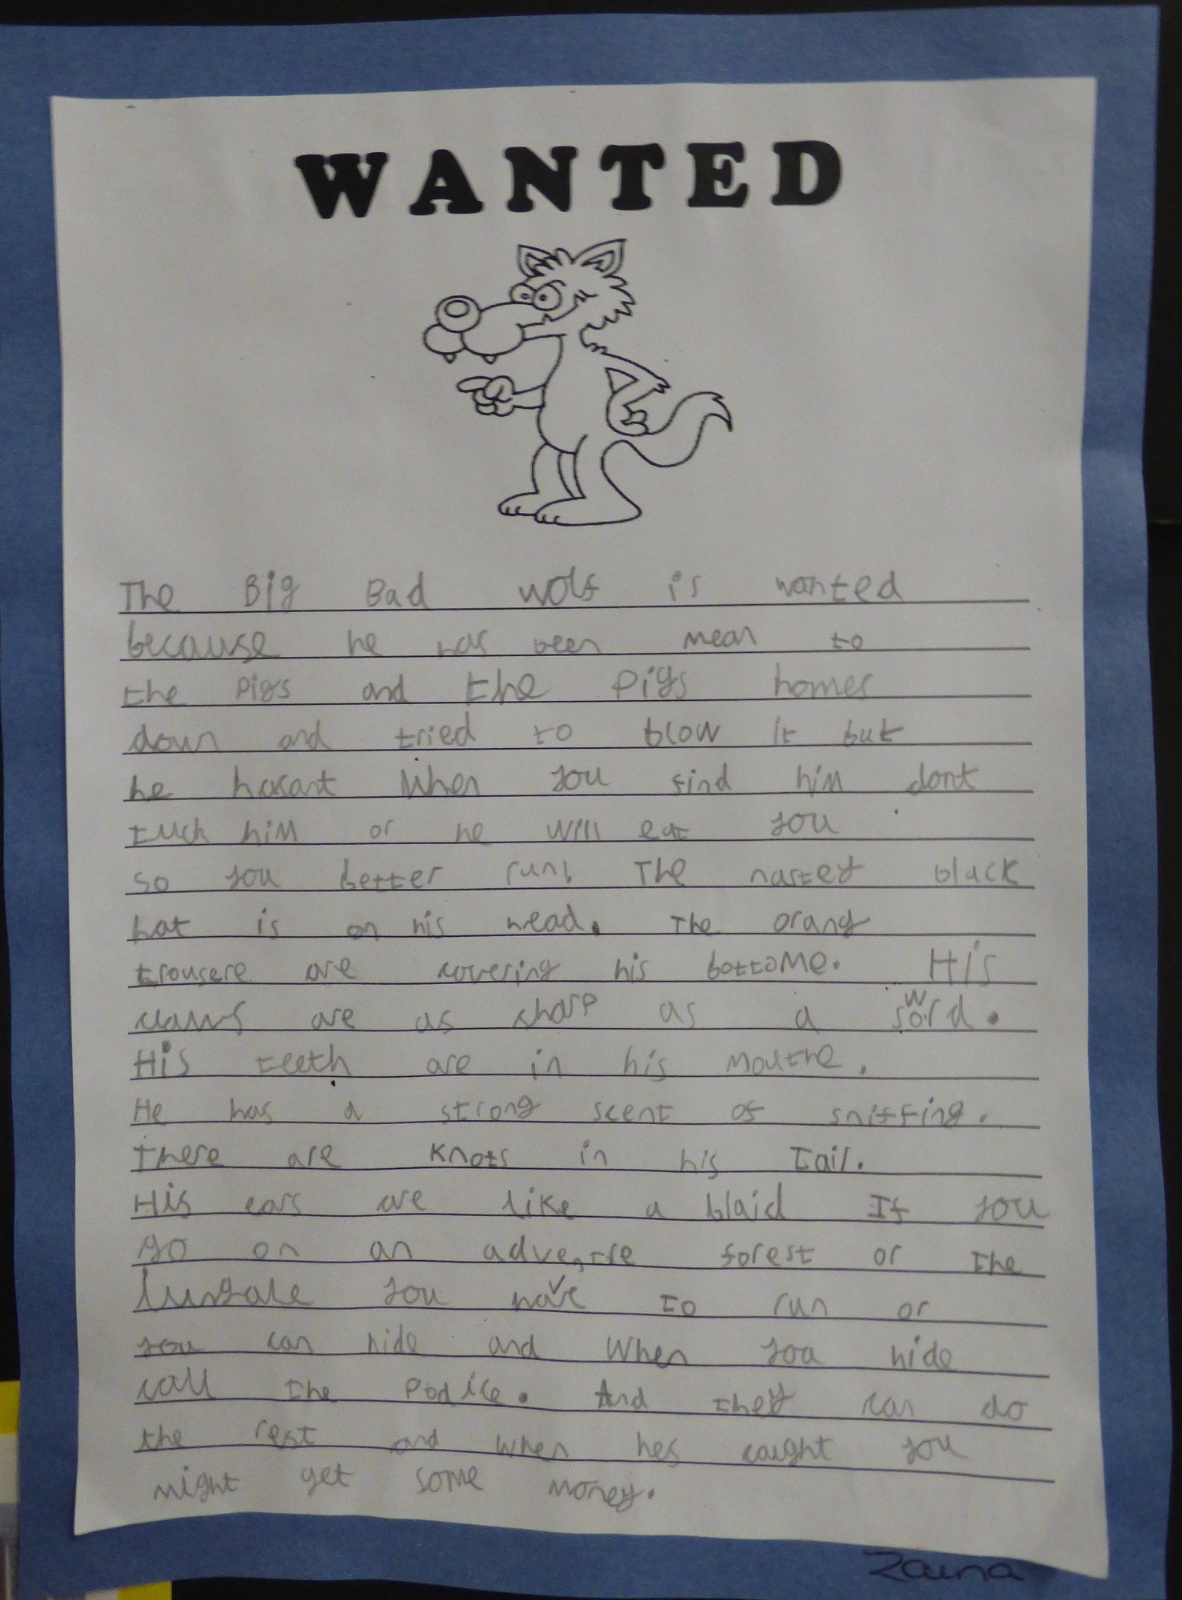 WANTED
The Big Bad wolf is wanted
because he has been mean to
the pigs and the pigs homes
down and tried to blow it but
he hasant When you find him dont
tuch him or he will eat you
so you better run! The nastey black
hat is on his head. The orang
trousere are covering his bottome. His
claws are as sharp as a sword.
His teeth are in his mouthe.
He has a strong scent of sniffing.
There are knots in his tail.
His ears are like a blaid If you
go on an forest or the
you have to run or
you can hide and when you hide
call the . And they can do
the rest and when hes caught you
might get some money.
Zaina